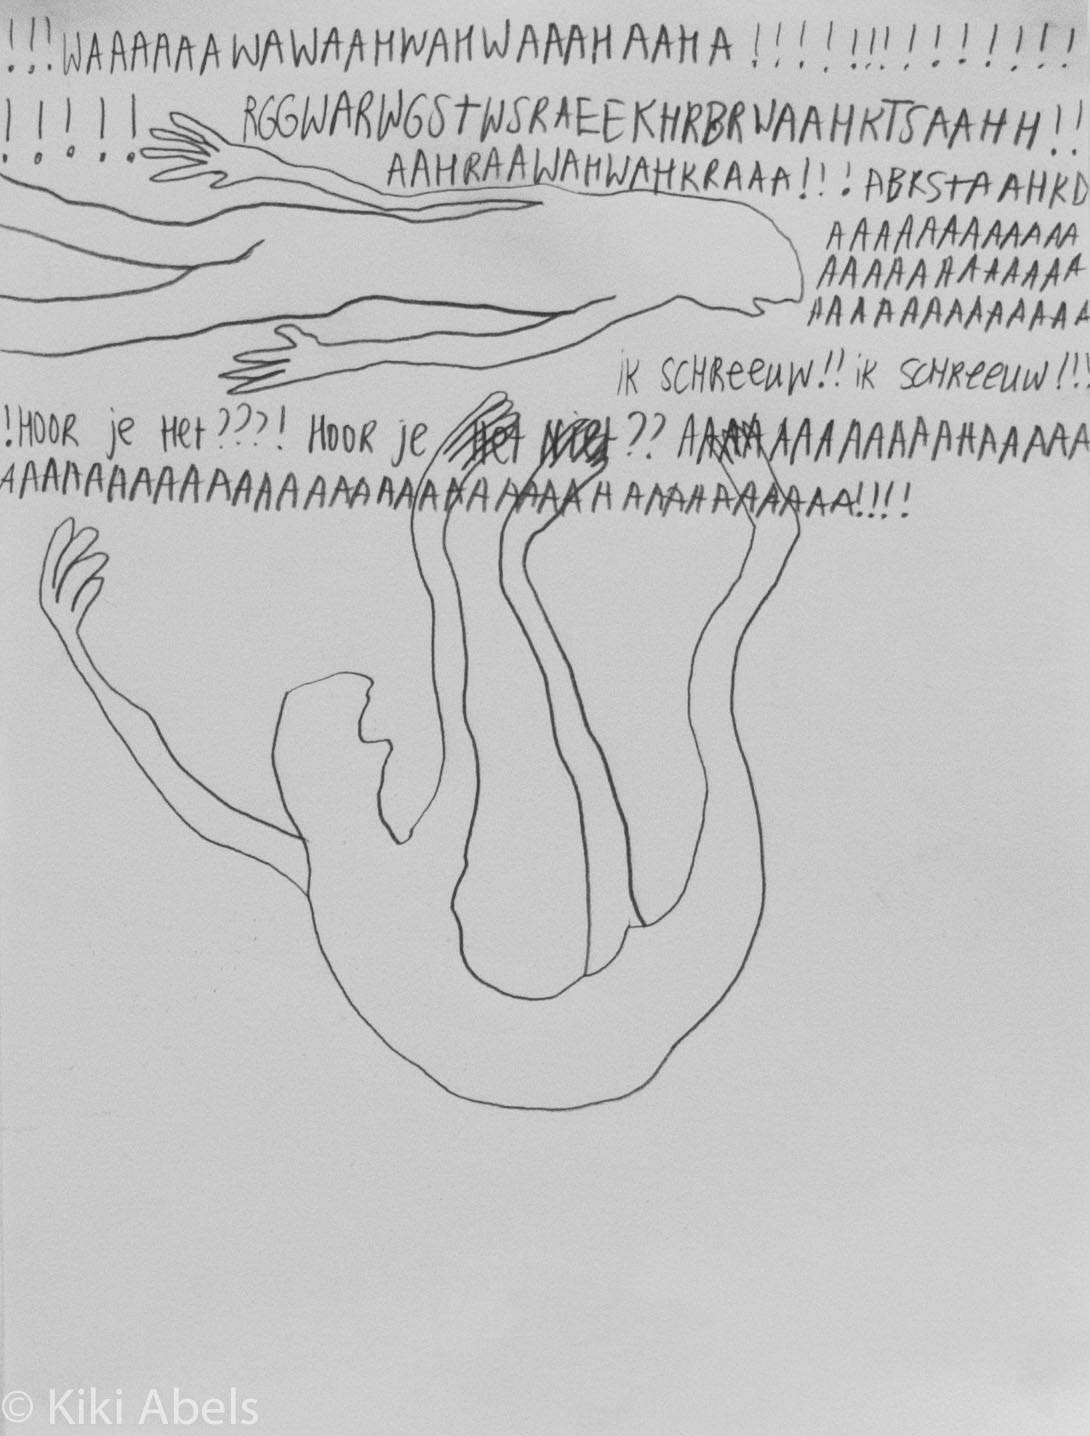 !!!WAAAAAAWAWAAHWAHWAAAHAAHA!!!!!!!!!!!!!!
!!!!! RGGWARWGSTWSRAEEKHRBRWAAHKTSAAHH!!
AAHRAAWAHWAHKRAAA!!! ABRSTAAHKD
AAAAAAAAAAAA
AAAAAAAAAAAA
AAAAAAAAAAAAA
iK SCHReeuW!! iK SCHReeuW!!!
!HOOR je Het???! HOOR je Het Niet?? AAAAAAAAAAAAHAAAAA
AAAAAAAAAAAAAAAAAAAAAAAAAAHAAAHAAAAAAA!!!!
© Kiki Abels